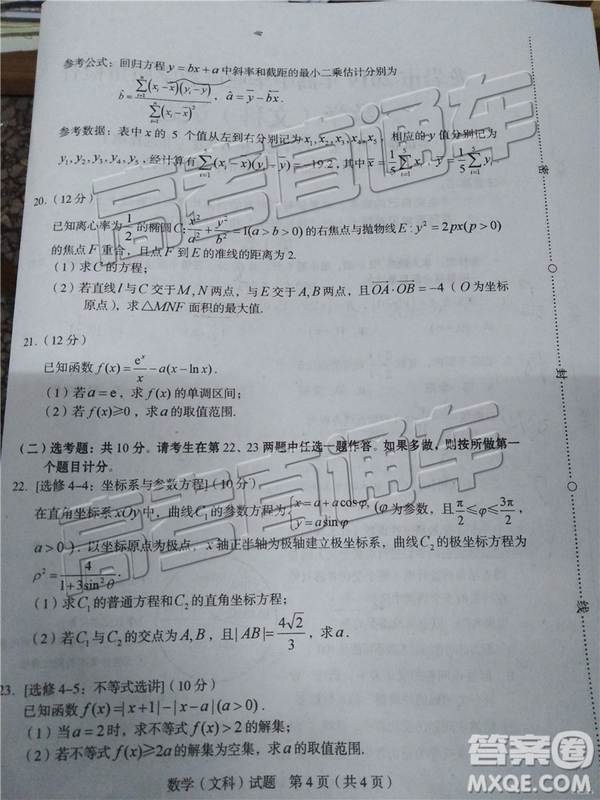 参考公式：回归方程 y=bx+a 中斜率和截距的最小二乘估计分别为
b̂=∑(i=1→n)(x_i-x̄)(y_i-ȳ)/∑(i=1→n)(x_i-x̄)²，â=ȳ-b̂x̄.
参考数据：表中 x 的 5 个值从左到右分别记为 x₁,x₂,x₃,x₄,x₅，相应的 y 值分别为
y₁,y₂,y₃,y₄,y₅，经计算有 ∑(i=1→5)(x_i-x̄)(y_i-ȳ)=-19.2，其中 x̄=1/5∑(i=1→5)x_i，ȳ=1/5∑(i=1→5)y_i.
20.（12 分）
已知离心率为 1/2 的椭圆 C: x²/a²+y²/b²=1(a>b>0) 的右焦点与抛物线 E: y²=2px(p>0)
的焦点 F 重合，且点 F 到 E 的准线的距离为 2.
（1）求 C 的方程；
（2）若直线 l 与 C 交于 M,N 两点，与 E 交于 A,B 两点，且 OA·OB=-4（O 为坐标
原点），求 △MNF 面积的最大值.
21.（12 分）
已知函数 f(x)=eˣ/x-a(x-ln x).
（1）若 a=e，求 f(x) 的单调区间；
（2）若 f(x)≥0，求 a 的取值范围.
（二）选考题：共 10 分。请考生在第 22、23 两题中任选一题作答。如果多做，则按所做第一
个题目计分。
22. [选修 4-4：坐标系与参数方程]（10 分）
在直角坐标系 xOy 中，曲线 C₁ 的参数方程为 {x=a+acosφ, y=asinφ（φ 为参数，且 π/2≤φ≤3π/2，
a>0），以坐标原点为极点，x 轴正半轴为极轴建立极坐标系，曲线 C₂ 的极坐标方程为
ρ²=4/(1+3sin²θ).
（1）求 C₁ 的普通方程和 C₂ 的直角坐标方程；
（2）若 C₁ 与 C₂ 的交点为 A,B，且 |AB|=4√2/3，求 a.
23. [选修 4-5：不等式选讲]（10 分）
已知函数 f(x)=|x+1|-|x-a|(a>0).
（1）当 a=2 时，求不等式 f(x)>2 的解集；
（2）若不等式 f(x)≥2a 的解集为空集，求 a 的取值范围.
数学（文科）试题 第 4 页（共 4 页）
密
封
线
高考直通车
高考直通车
高考直通车
答案圈
MXQE.COM